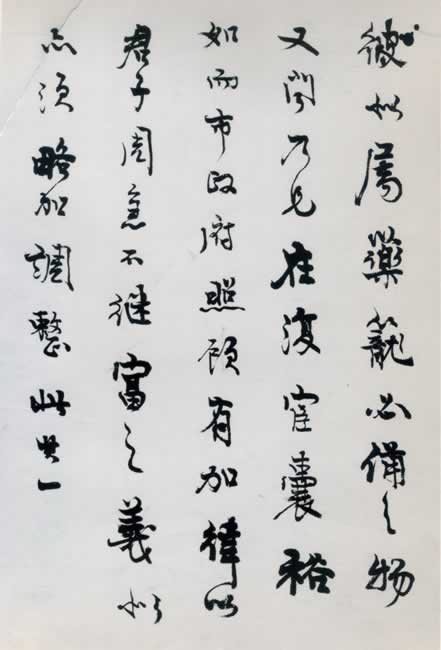 似属藥籠必備之物
又聞乃兄在宦囊裕
如而市政府照顧有加律以
君子周急不继富之義似
亦須略加調整此其一